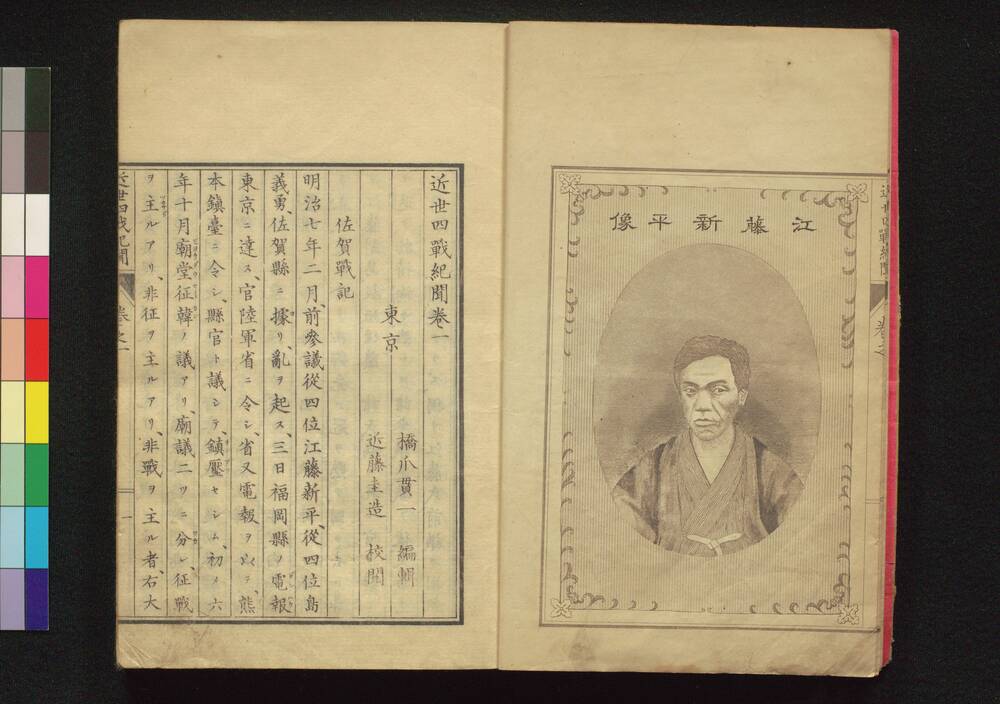 江藤新平像
近世四戰紀聞卷一
東京
橋爪貫一 編輯
近藤圭造 校閲
佐賀戰記
明治七年二月、前參議從四位江藤新平、從四位島
義勇、佐賀縣ニ據リ、亂ヲ起ス、三日福岡縣ノ電報
東京ニ達ス、官陸軍省ニ令シ、省又電報ヲ以テ、熊
本鎮臺ニ令シ、縣官ト議シテ、鎮壓セシム、初メ六
年十月廟堂征韓ノ議アリ、廟議二ツニ分レ、征戰
ヲ主ルアリ、非征ヲ主ルアリ、非戰ヲ主ル者、右大